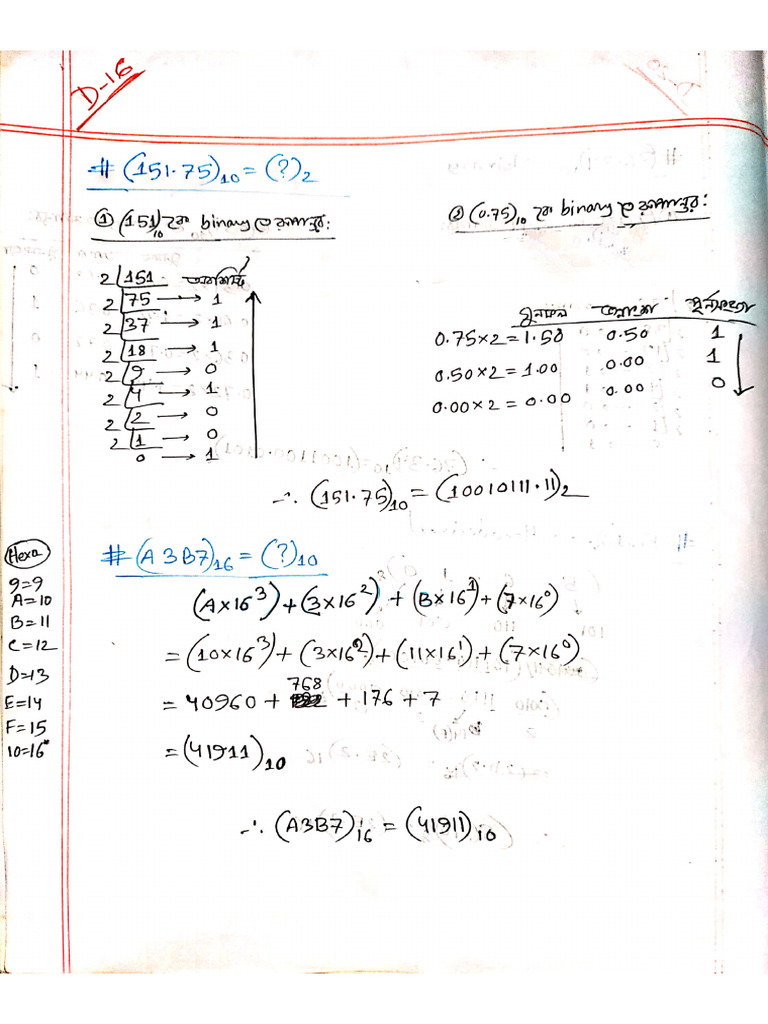 D-16
# (151.75)₁₀ = (?)₂
① (151)₁₀ কে binary তে রূপান্তর:
2 | 151 অবশিষ্ট
2 | 75 → 1
2 | 37 → 1
2 | 18 → 1
2 | 9 → 0
2 | 4 → 1
2 | 2 → 0
2 | 1 → 0
0 → 1
② (0.75)₁₀ কে binary তে রূপান্তর:
গুনফল ভগ্নাংশ পূর্নসংখ্যা
0.75×2 = 1.50 0.50 1
0.50×2 = 1.00 0.00 1
0.00×2 = 0.00 0.00 0
∴ (151.75)₁₀ = (10010111.11)₂
# (A3B7)₁₆ = (?)₁₀
(A×16³)+(3×16²)+(B×16¹)+(7×16⁰)
= (10×16³)+(3×16²)+(11×16¹)+(7×16⁰)
= 40960 + 768 + 176 + 7
= (41911)₁₀
∴ (A3B7)₁₆ = (41911)₁₀
Hexa
9=9
A=10
B=11
C=12
D=13
E=14
F=15
10=16